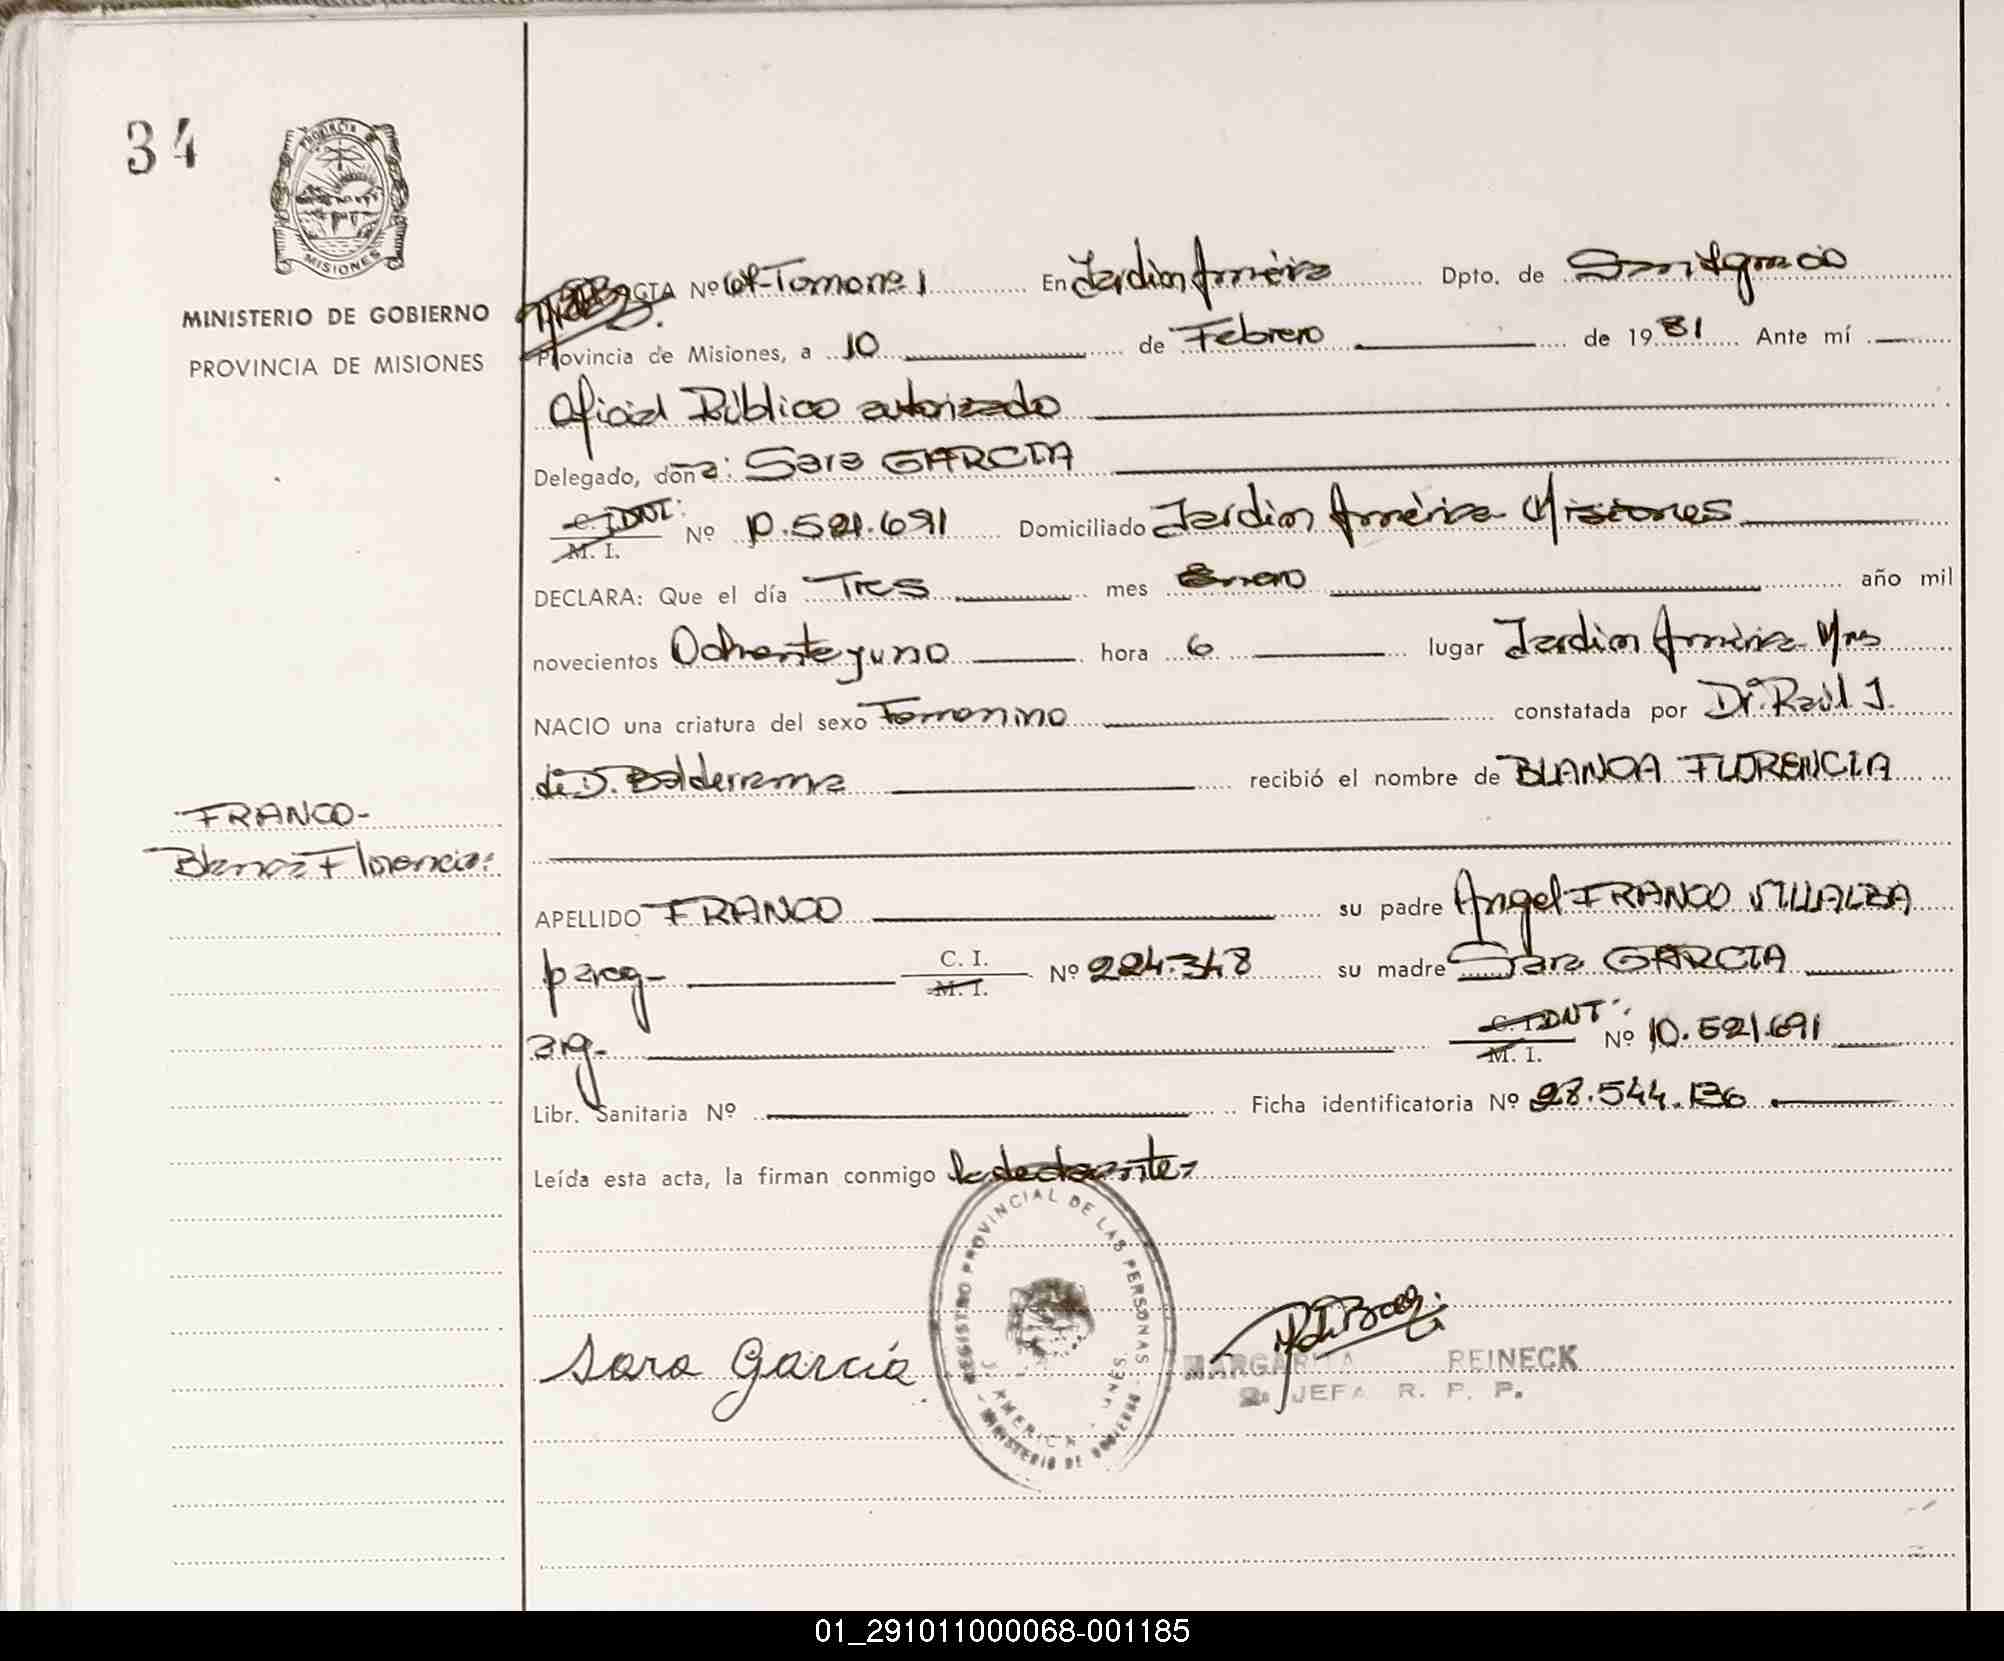 34
PROVINCIA
MISIONES
MINISTERIO DE GOBIERNO
PROVINCIA DE MISIONES
FRANCO-
Blanca Florencia:
ACTA Nº Tomo nº 1 En Jardín América Dpto. de San Ignacio
Provincia de Misiones, a 10 de Febrero de 1981 Ante mí
Oficial Público autorizado
Delegado, doña: Sara GARCIA
C. I. DNI: M. I. Nº 10.521.691 Domiciliado Jardín América Misiones
DECLARA: Que el día Tres mes Enero año mil
novecientos Ochenta y uno hora 6 lugar Jardín América Mnes
NACIO una criatura del sexo Femenino constatada por Dr. Raúl J.
de D. Balderrama recibió el nombre de BLANCA FLORENCIA
APELLIDO FRANCO su padre Angel FRANCO VILLALBA
parag- C. I. M. I. Nº 224.348 su madre Sara GARCIA
arg- C. I. DNI: M. I. Nº 10.521.691
Libr. Sanitaria Nº Ficha identificatoria Nº 28.544.136
Leída esta acta, la firman conmigo la declarante-
REGISTRO PROVINCIAL DE LAS PERSONAS
J. AMERICA
MINISTERIO DE GOBIERNO
Sara García
MARGARITA REINECK
JEFA R. P. P.
01_291011000068-001185